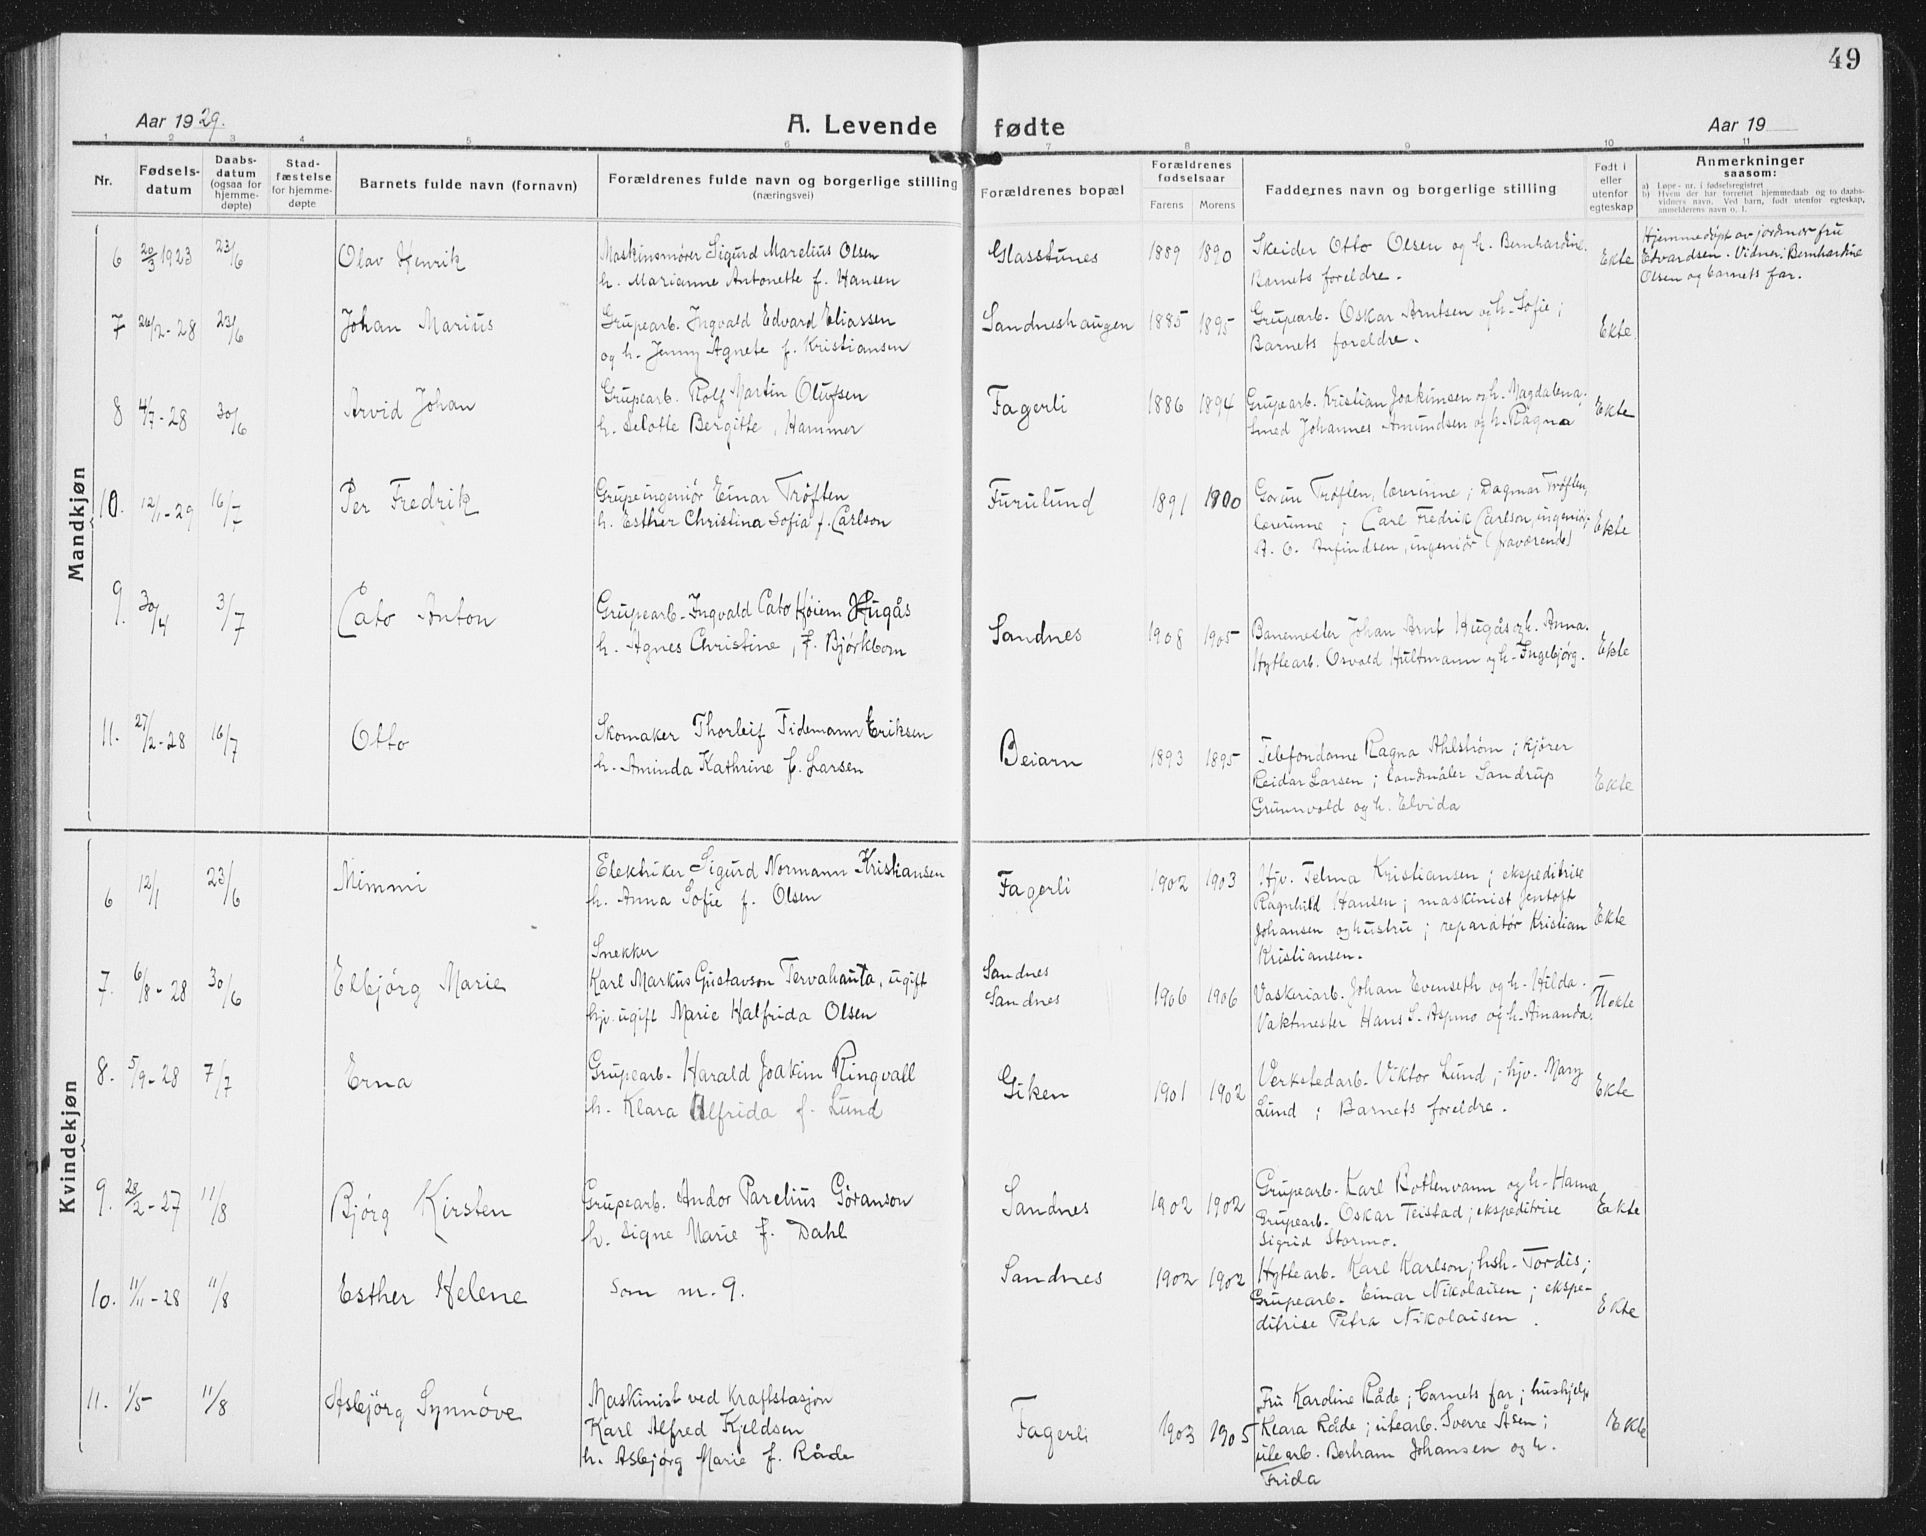 49
Aar 1929.
A. Levende fødte
Aar 19
1 2 3 4 5 6 7 8 9 10 11
Nr.
Fødsels-
datum
Daabs-
datum
(ogsaa for
hjemme-
døpte)
Stad-
fæstelse
for hjemme-
døpte
Barnets fulde navn (fornavn)
Forældrenes fulde navn og borgerlige stilling
(næringsvei)
Forældrenes bopæl
Forældrenes
fødselsaar
Farens Morens
Faddernes navn og borgerlige stilling
Født i
eller
utenfor
egteskap
Anmerkninger
saasom:
a) Løpe-nr. i fødselsregistret
b) Hvem der har forrettet hjemmedaab og to daabs-
vidners navn. Ved barn, født utenfor egteskap,
anmelderens navn o. l.
Mandkjøn
6 20/3 1923 23/6 Olav Henrik
Maskinsmører Sigurd Marelius Olsen
h. Marianne Antonette f. Hansen
Glasstunes 1889 1890
Skeider Otto Olsen og h. Bernhardine.
Barnets foreldre.
Ekte
Hjemmedøpt av jordmor fru
Edvardsen. Vidner: Bernhardine
Olsen og barnets far.
7 26/2-28 23/6 Johan Marius
Grupearb. Ingvald Edvard Eliassen
og h. Jenny Agnete f. Kristiansen
Sandneshaugen 1885 1895
Grupearb. Oskar Arntsen og h. Sofie;
Barnets foreldre.
Ekte
8 4/7-28 30/6 Arvid Johan
Grupearb. Rolf Martin Olufsen
h. Selotte Bergitte, Hammer
Fagerli 1886 1894
Grupearb. Kristian Joakimsen og h. Magdalena,
Smed Johannes Amundsen og h. Ragna
Ekte
10. 12/1-29 16/7 Per Fredrik
Grupeingeniør Einar Trøften
h. Esther Christina Sofia f. Carlson
Furulund 1891 1890
Gorun Trøften, lærerinne; Dagmar Trøften,
lærerinne; Carl Fredrik Carlson, ingeniør,
A. O. Anfindsen, ingeniør (fraværende)
Ekte
9. 30/4 3/7 Cato Anton
Grupearb. Ingvald Cato Høiem Hugås
h. Agnes Christine, f. Bjørkbom
Sandnes 1908 1905
Banemester Johan Arnt Hugås og h. Anna.
Hyttearb. Osvald Hultmann og h. Ingebjørg.
Ekte
11. 27/2-28 16/7 Otto
Skomaker Thorleif Tidemann Eriksen
h. Aminda Kathrine f. Larsen
Beiarn 1893 1895
Telefondame Ragna Ahlstrøm; kjører
Reidar Larsen; landmåler Sandrup
Grunnvold og h. Elvida
Ekte
Kvindekjøn
6 12/1 23/6 Mimmi
Elektriker Sigurd Normann Kristiansen
h. Anna Sofie f. Olsen
Fagerli 1902 1903
Hjv. Telma Kristiansen; ekspeditrise
Ragnhild Hansen; maskinist Jentoft
Johansen og hustru; reparatør Kristian
Kristiansen.
Ekte
7. 6/8-28 30/6 Elbjørg Marie
Snekker
Karl Markus Gustavson Tervahauta, ugift
hjv. ugift Marie Halfrida Olsen
Sandnes
Sandnes 1906 1906
Vaskeriarb. Johan Evenseth og h. Hilda.
Vaktmester Hans S. Aspmo og h. Amanda.
Uekte
8. 5/9-28 7/7 Erna
Grupearb. Harald Joakim Ringvall
h. Klara Alfrida f. Lund
Giken 1901 1902
Verkstedarb. Viktor Lund; hjv. Mary
Lund; Barnets foreldre.
Ekte
9. 28/2-27 11/8 Bjørg Kirsten
Grupearb. Andor Parelius Göranson
h. Signe Marie f. Dahl
Sandnes 1902 1902
Grupearb. Karl Botlenvann og h. Hanna
Grupearb. Oskar Teistad; ekspeditrise
Sigrid Stormo.
Ekte
10. 11/11-28 11/8 Esther Helene
Som nr. 9.
Sandnes 1902 1902
Hyttearb. Karl Karlson; hsh. Tordis;
Grupearb. Einar Nikolaisen; ekspe-
ditrise Petra Nikolaisen.
Ekte
11. 1/5 11/8 Asbjørg Synnøve
Maskinist ved Kraftstasjon
Karl Alfred Kjeldsen
h. Asbjørg Marie f. Råde
Fagerli 1903 1905
Fru Karoline Råde; barnets far; hushjelp
Klara Råde; utearb. Sverre Åsen;
utearb. Berhram Johansen og h.
Frida
Ekte